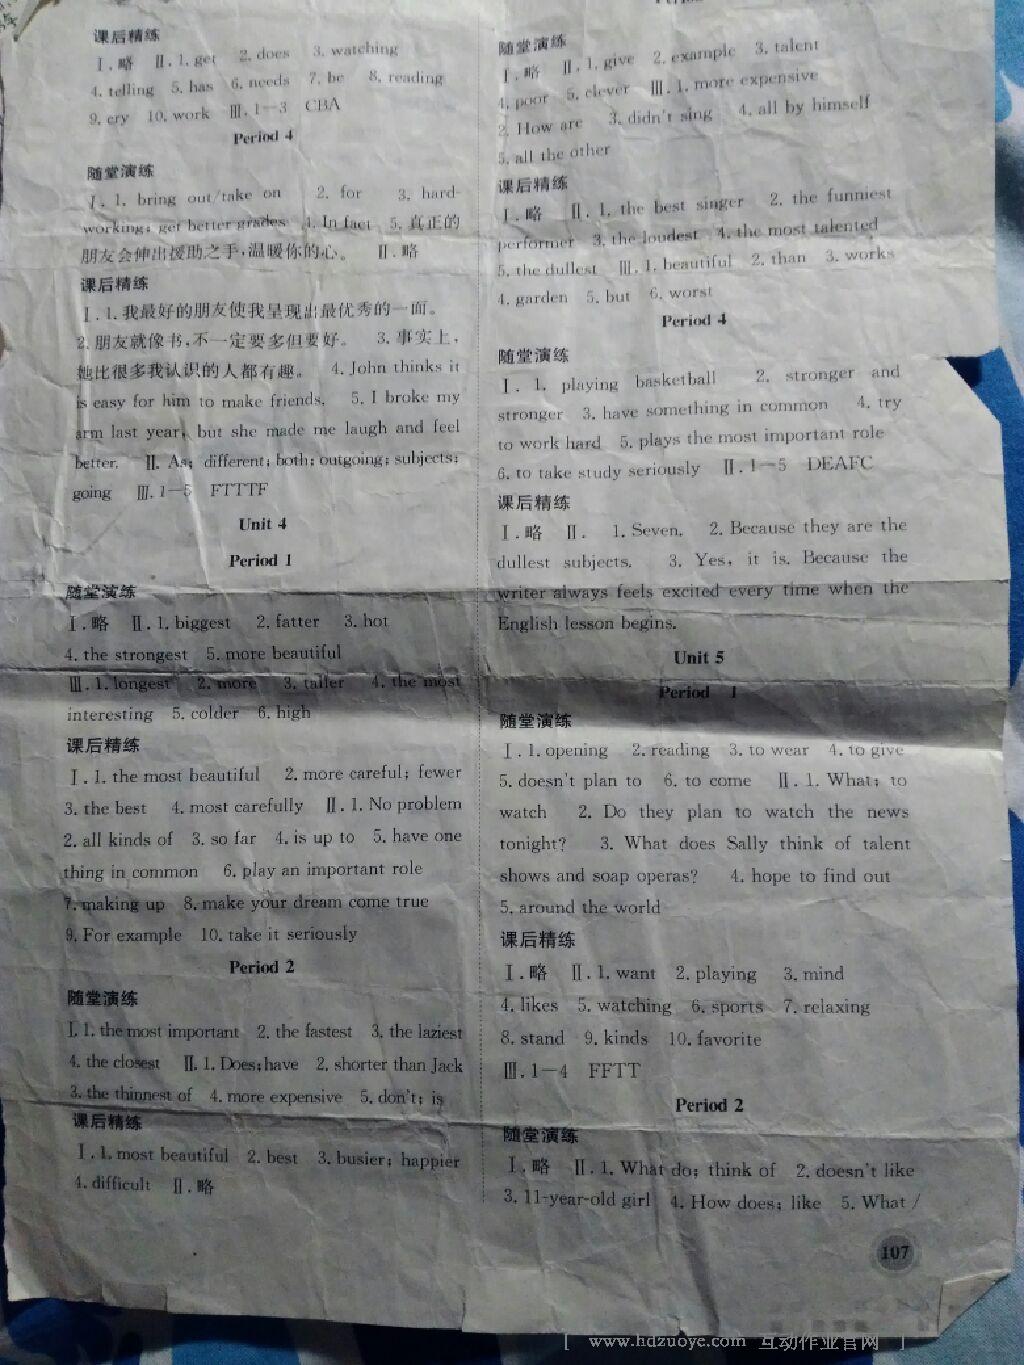 课后精练
Ⅰ.略 Ⅱ.1. get 2. does 3. watching
4. telling 5. has 6. needs 7. be 8. reading
9. cry 10. work Ⅲ.1—3 CBA
Period 4
随堂演练
Ⅰ. 1. bring out/take on 2. for 3. hard-
working; get better grades 4. In fact 5. 真正的
朋友会伸出援助之手,温暖你的心。 Ⅱ.略
课后精练
Ⅰ. 1. 我最好的朋友使我呈现出最优秀的一面。
2. 朋友就像书,不一定要多但要好。 3. 事实上,
她比很多我认识的人都有趣。 4. John thinks it
is easy for him to make friends. 5. I broke my
arm last year, but she made me laugh and feel
better. Ⅱ. As; different; both; outgoing; subjects;
going Ⅲ. 1—5 FTTTF
Unit 4
Period 1
随堂演练
Ⅰ.略 Ⅱ. 1. biggest 2. fatter 3. hot
4. the strongest 5. more beautiful
Ⅲ. 1. longest 2. more 3. taller 4. the most
interesting 5. colder 6. high
课后精练
Ⅰ. 1. the most beautiful 2. more careful; fewer
3. the best 4. most carefully Ⅱ. 1. No problem
2. all kinds of 3. so far 4. is up to 5. have one
thing in common 6. play an important role
7. making up 8. make your dream come true
9. For example 10. take it seriously
Period 2
随堂演练
Ⅰ. 1. the most important 2. the fastest 3. the laziest
4. the closest Ⅱ. 1. Does; have 2. shorter than Jack
3. the thinnest of 4. more expensive 5. don't; is
课后精练
Ⅰ. 1. most beautiful 2. best 3. busier; happier
4. difficult Ⅱ.略
随堂演练
Ⅰ.略 Ⅱ. 1. give 2. example 3. talent
4. poor 5. clever Ⅲ. 1. more expensive
2. How are 3. didn't sing 4. all by himself
5. all the other
课后精练
Ⅰ.略 Ⅱ. 1. the best singer 2. the funniest
performer 3. the loudest 4. the most talented
5. the dullest Ⅲ. 1. beautiful 2. than 3. works
4. garden 5. but 6. worst
Period 4
随堂演练
Ⅰ. 1. playing basketball 2. stronger and
stronger 3. have something in common 4. try
to work hard 5. plays the most important role
6. to take study seriously Ⅱ. 1—5 DEAFC
课后精练
Ⅰ.略 Ⅱ. 1. Seven. 2. Because they are the
dullest subjects. 3. Yes, it is. Because the
writer always feels excited every time when the
English lesson begins.
Unit 5
Period 1
随堂演练
Ⅰ. 1. opening 2. reading 3. to wear 4. to give
5. doesn't plan to 6. to come Ⅱ. 1. What; to
watch 2. Do they plan to watch the news
tonight? 3. What does Sally think of talent
shows and soap operas? 4. hope to find out
5. around the world
课后精练
Ⅰ.略 Ⅱ. 1. want 2. playing 3. mind
4. likes 5. watching 6. sports 7. relaxing
8. stand 9. kinds 10. favorite
Ⅲ. 1—4 FFTT
Period 2
随堂演练
Ⅰ.略 Ⅱ. 1. What do; think of 2. doesn't like
3. 11-year-old girl 4. How does; like 5. What /
107
[ www.hdzuoye.com 互动作业官网 ]